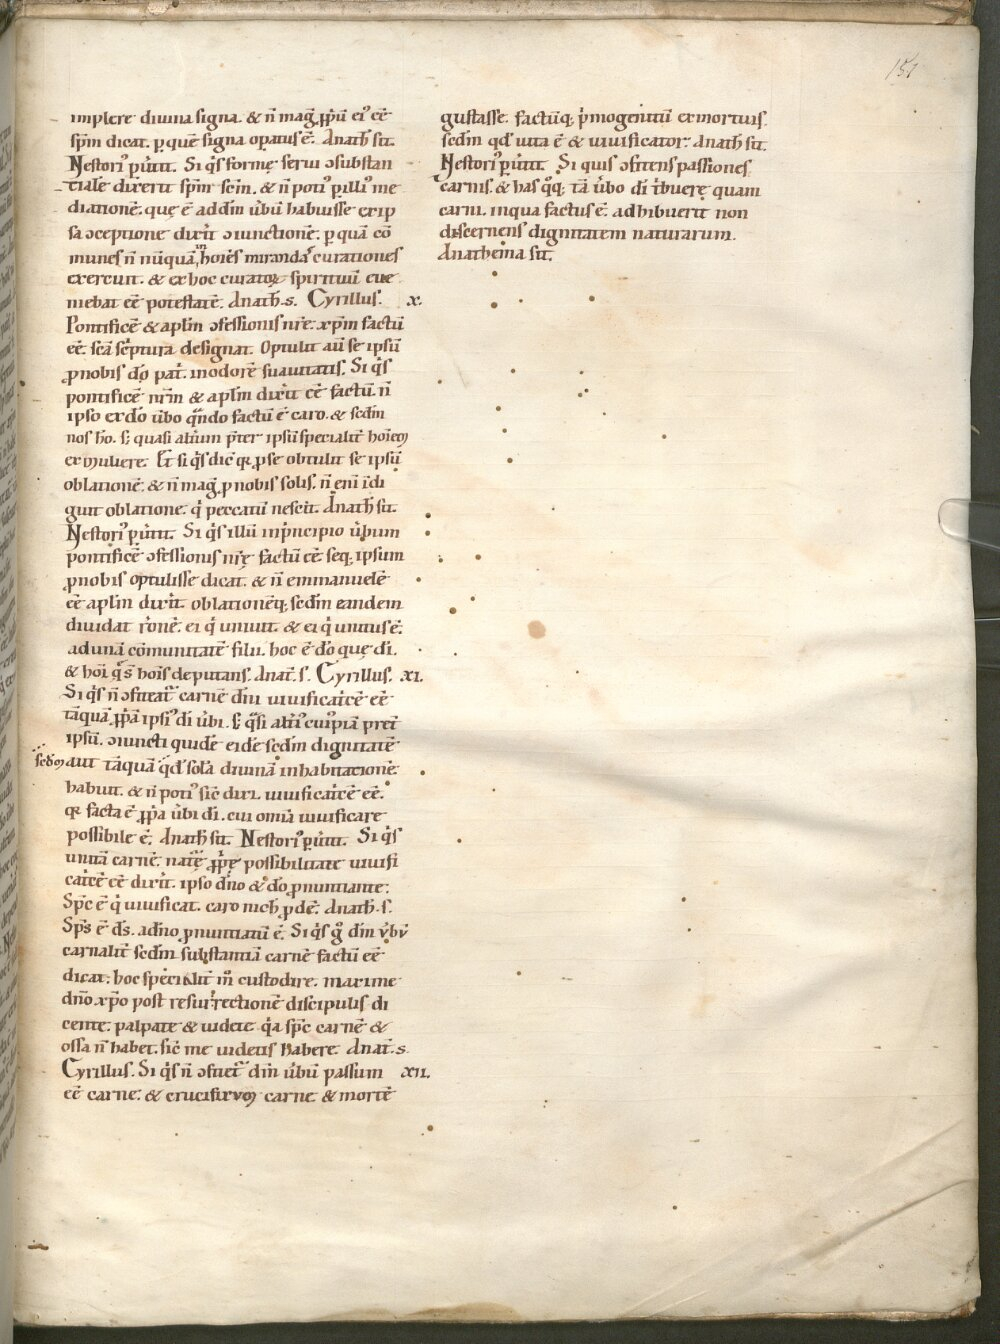 151
implere divina signa. & n̄ mag̃ ꝓp̄ū ei᷒ eē
sp̄m dicat. ꝑ quē signa opatus ē. Anath̄ sit.
Nestori᷒ ꝑūtit. Si q̇s formę servi ↄsubstan
tiale dixerit sp̄m sc̄m. & n̄ poti᷒ ꝑ illi᷒ me
diationē. quę ē ad dm̄ ūbū habuisse ex ip
sa ↄceptione dix̄it ↄiunctionē. ꝑ quā cō
munes n̄ nūquā in hoīes miranda᷒ curationes
exercuit. & ex hoc curatoꝝ spirituū eve
niebat eē potestatē. Anath̄. s. Cyrillus. x.
Pontificē & apl̄m ↄfessionis nr̄e. xp̄m factū
eē. sc̄a sc̄ptura designat. Optulit aū se ipsū
ꝓ nobis dō pat̄. in odorē suavitatis. Si q̇s
pontificē nr̄m & apl̄m dix̄it eē factū. n̄
ipso ex dō ūbo q̄ndo factū ē caro. & scd̄m
nos hō. s; quasi alt̄um p̄ter ipsū specialit̄ hoīem
ex muliere. Et si q̇s dic̄ qꝛ ꝓ se obtulit se ipsū
oblationē. & n̄ mag̃ ꝓ nobis solis. n̄ eni īdi
guit oblatione. q̇ peccatū nescit. Anath̄ sit.
Nestori᷒ ꝑūtit. Si q̇s illū in ṗncipio ūbum
pontificē ↄfessionis nr̄ę factū eē. seq; ipsum
ꝓ nobis optulisse dicat. & n̄ emmanuelē
eē apl̄m dix̄it. oblationēq; scd̄m eandem
dividat r̄onē. ei q̇ univit. & ei q̇ unitus ē.
ad unā cōmunitatē filii. hoc ē dō quę di.
& hoī q̄s hoīs deputans. Anat̄. s. Cyrillus. xi.
Si q̇s n̄ ↄfiteat᷑ carnē dn̄i vivificat̄cē eē
tāquā ꝓp̄ā ipsi᷒ dī ūbi. s; q̄si alt̄i᷒ cui᷒piā p̄et̄
ipsū. ↄiuncti quidē ei dē scd̄m dignitatē
scd̄m aut tāquā qd̄ sola divinā inhabitationē
habuit. & n̄ poti᷒ sic̄ dixi. vivificat̄cē eē.
qꝛ facta ē ꝓp̄a ūbi dī. cui omīa vivificare
possibile ē. Anath̄ sit. Nestori᷒ ꝑūtit. Si q̇s
unitā carnē. nat᷑ę ꝓp̄ę possibilitate vivifi
cat̄cē eē dix̄it. ipso dn̄o & dō ꝓnuntiante.
Sp̄c ē q̇ vivificat. caro nich̄ ꝓdē. Anath̄. s.
Sp̄s ē ds̄. a dn̄o ꝓnuntiatū ē. Si q̇s g̊ dm̄ ūbū
carnalit̄ scd̄m substantiā carnē factū eē
dicat. hoc specialit̄ m̊ custodire. maxime
dn̄o xp̄o post resurrectionē discipulis di
cente. palpate & videte q̇a sp̄c carnē &
ossa n̄ habet. sic̄ me videtis habere. Anat̄. s.
Cyrillus. Si q̇s n̄ ↄfitet᷑ dm̄ ūbū passum xii.
eē carne. & crucifixum carne & mortē
gustasse. factūq; ṗmogenitū ex mortuis.
scd̄m qd̄ vita ē & vivificator. Anath̄ sit.
Nestori᷒ ꝑūtit. Si quis ↄfitens passiones
carnis. & has q̊q; tā ūbo dī ṫbuerę quam
carni. in qua factus ē. adhibuerit non
discernens dignitatem naturarum.
Anathema sit.